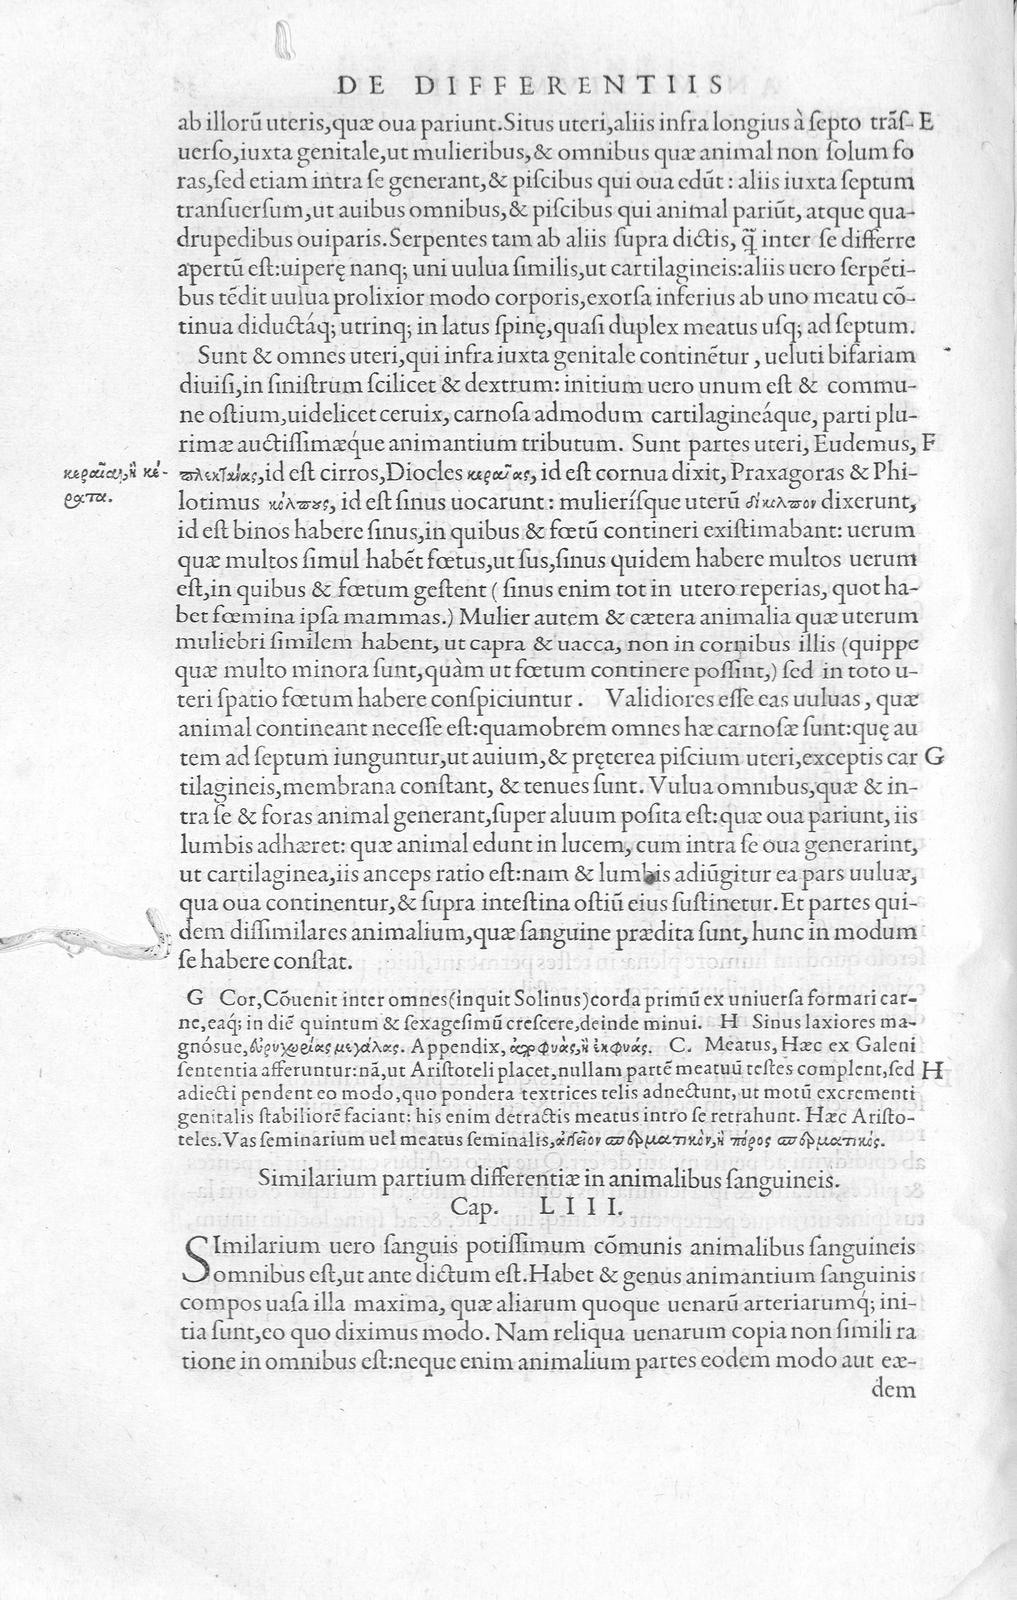 DE DIFFERENTIIS
ab illorū uteris,quæ oua pariunt.Situs uteri,aliis infra longius à ſepto trāſ- E
uerſo,iuxta genitale,ut mulieribus,& omnibus quæ animal non ſolum fo
ras,ſed etiam intra ſe generant,& piſcibus qui oua edūt: aliis iuxta ſeptum
tranſuerſum,ut auibus omnibus,& piſcibus qui animal pariūt, atque qua-
drupedibus ouiparis.Serpentes tam ab aliis ſupra dictis, q̃ inter ſe differre
apertū eſt:uiperę nanq; uni uulua ſimilis,ut cartilagineis:aliis uero ſerpēti-
bus tēdit uulua prolixior modo corporis,exorſa inferius ab uno meatu cō-
tinua diductáq; utrinq; in latus ſpinę,quaſi duplex meatus uſq; ad ſeptum.
Sunt & omnes uteri,qui infra iuxta genitale continētur , ueluti bifariam
diuiſi,in ſiniſtrum ſcilicet & dextrum: initium uero unum eſt & commu-
ne oſtium,uidelicet ceruix, carnoſa admodum cartilagineáque, parti plu-
rimæ auctiſſimæque animantium tributum. Sunt partes uteri, Eudemus, F
κεραῖαι, ἢ κέ-
ρατα.
πλεκτάνας,id eſt cirros,Diocles κεραίας, id eſt cornua dixit, Praxagoras & Phi-
lotimus κόλπους, id eſt ſinus uocarunt: mulieríſque uterū δίκολπον dixerunt,
id eſt binos habere ſinus,in quibus & fœtū contineri exiſtimabant: uerum
quæ multos ſimul habēt fœtus,ut ſus,ſinus quidem habere multos uerum
eſt,in quibus & fœtum geſtent ( ſinus enim tot in utero reperias, quot ha-
bet fœmina ipſa mammas.) Mulier autem & cætera animalia quæ uterum
muliebri ſimilem habent, ut capra & uacca, non in cornibus illis (quippe
quæ multo minora ſunt,quàm ut fœtum continere poſſint,) ſed in toto u-
teri ſpatio fœtum habere conſpiciuntur . Validiores eſſe eas uuluas , quæ
animal contineant neceſſe eſt:quamobrem omnes hæ carnoſæ ſunt:quę au
tem ad ſeptum iunguntur,ut auium,& pręterea piſcium uteri,exceptis car G
tilagineis,membrana conſtant, & tenues ſunt. Vulua omnibus,quæ & in-
tra ſe & foras animal generant,ſuper aluum poſita eſt:quæ oua pariunt, iis
lumbis adhæret: quæ animal edunt in lucem, cum intra ſe oua generarint,
ut cartilaginea,iis anceps ratio eſt:nam & lumbis adiūgitur ea pars uuluæ,
qua oua continentur,& ſupra inteſtina oſtiū eius ſuſtinetur.Et partes qui-
dem diſſimilares animalium,quæ ſanguine prædita ſunt, hunc in modum
ſe habere conſtat.
G Cor,Cōuenit inter omnes(inquit Solinus)corda primū ex uniuerſa formari car-
ne,eaq; in diē quintum & ſexageſimū creſcere,deinde minui. H Sinus laxiores ma-
gnóſue,εὐρυχωρίας μεγάλας. Appendix, ἀποφυάς, ἢ ἐκφυάς. C. Meatus, Hæc ex Galeni
ſententia afferuntur:nā,ut Ariſtoteli placet,nullam partē meatuū teſtes complent,ſed H
adiecti pendent eo modo,quo pondera textrices telis adnectunt, ut motū excrementi
genitalis ſtabiliorē faciant: his enim detractis meatus intro ſe retrahunt. Hæc Ariſto-
teles.Vas ſeminarium uel meatus ſeminalis,ἀγγεῖον σπερματικόν, ἢ πόρος σπερματικός.
Similarium partium differentiæ in animalibus ſanguineis.
Cap. LIII.
SImilarium uero ſanguis potiſſimum cōmunis animalibus ſanguineis
omnibus eſt,ut ante dictum eſt.Habet & genus animantium ſanguinis
compos uaſa illa maxima, quæ aliarum quoque uenarū arteriarumq́; ini-
tia ſunt,eo quo diximus modo. Nam reliqua uenarum copia non ſimili ra
tione in omnibus eſt:neque enim animalium partes eodem modo aut eæ-
dem